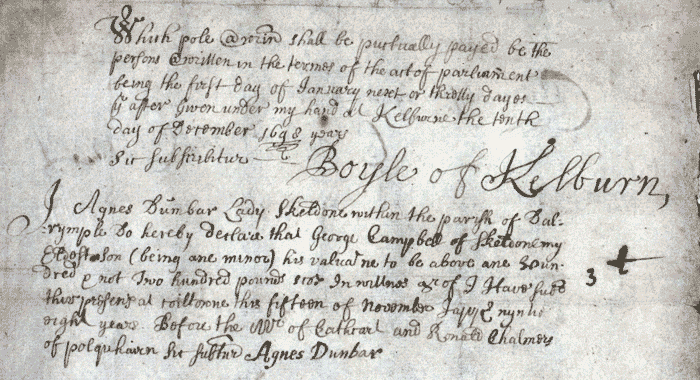 Which pole @wrin shall be puctually payed be the
persons @written in the termes of the act of parliament
being the first day of January next or thretty dayes
yr after Given under my hand at Kelburne the tenth
day of December 1698 years
Sic subscribitur Boyle of Kelburn,
I Agnes Dunbar Lady Skeldone within the parish of Dal-
-rymple do hereby declare that George Campbell of Skeldone my
Eldest son (being ane minor) his valua ne to be above ane Hun-
dred & not Two hundred pounds scos In witnes qr of I Have subt
thir presents at this fifteen of November Jajvj & nyntie
eight years Before the Mr of Cathcart and Ronald Chalmers
of polquhairn Sic subtur Agnes Dunbar
3